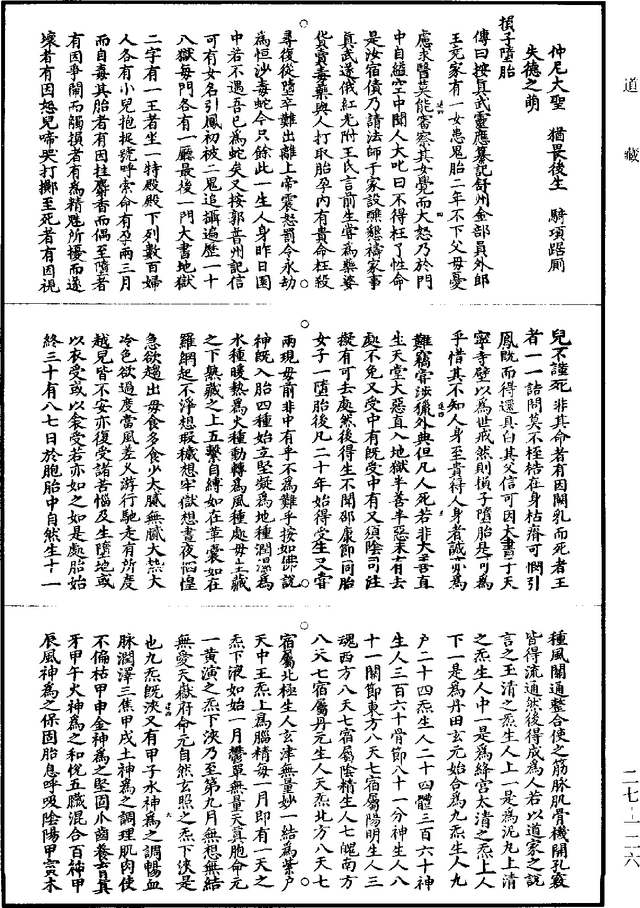 道藏
仲尼大聖　猶畏後生　騎項踞廁
失德之萌
損子墮胎
傳曰按真武靈應集記舒州金部員外郎
王兗家有一女患鬼胎二年不下父母憂
慮求醫莫能審察其女覺而大怒乃於門
中自縊空中聞人大叱曰不得枉了性命
是汝宿債乃請法師于家設醮懇禱家事
真武遂俄紅光附王氏言前生嘗為藥婆
貨賣毒藥與人打取胎孕內有貴命枉殺
尋復從墮卒難出離上帝震怒罰令永劫
為恒沙毒蛇今只餘此一生人身昨日園
中若不遇吾已為蛇矣又按郭普州記信
可有女名引鳳初被二鬼追攝遍歷一十
八獄每門各有一廳最後一門大書地獄
二字有一王者坐一特殿殿下列數百婦
人各有小兒抱捉號呼索命有孕兩三月
而自毒其胎者有因拄麝香而偶至墮者
有因爭鬧而觸損者有為精魅所擾而遂
壞者有因怒兒啼哭打擲至死者有因視
兒不謹死非其命者有因闕乳而死者王
者一一詰問莫不桎梏在身枯瘠可憫引
鳳既而得還具白其父信可因大書于天
寧寺壁以為世戒然則損子墮胎是可為
乎惜其不知人身至貴得人身者誠亦為
難竊嘗涉獵外典但凡人死若非大善直
生天堂大惡直入地獄半善半惡未有去
處不免又受中有既受中有又須陰司註
擬有可去處然後得生不聞邵康節同胎
女子一墮胎後凡二十年始得受生又嘗
兩現母前非中有乎不為難乎按如佛說
神既入胎四種始立堅凝為地種潤濕為
水種暖熱為火種動轉為風種處母生藏
之下熟藏之上五繫自縛如在革囊如在
羅網起不淨想瑕穢想牢獄想晝夜惱惶
急欲趨出母食多食少大膩無膩大熱大
冷色欲過度當風差久游行馳走有所度
越兒皆不安亦復受諸苦惱及生墮地或
以衣受或以衾受若亦如之如是處胎始
終三十有八七日於胞胎中自然生十一
種風開通整合使之筋脉肌骨機關孔竅
皆得流通然後得成為人若以道家之說
言之玉清之炁生人上一是為泥丸上清
之炁生人中一是為絳宮太清之炁生人
下一是為丹田玄元始合為九炁生人九
戶二十四炁生人二十四體三百六十神
生人三百六十骨節八十一分神生人八
十一關節東方八天七宿屬陽明生人三
魂西方八天七宿屬陰精生人七魄南方
八天七宿屬丹元生人天炁北方八天七
宿屬北極生人玄津無量妙一結為紫戶
天中王炁上為腦精每一月即有一天之
炁下液如始一月鬱單無量天真胞命元
一黃演之炁下浹乃至第九月無想無結
無愛天嶽府命元自然玄照之炁下浹是
也九炁既浹又有甲子水神為之調暢血
脉潤澤三焦甲戌土神為之調理肌肉使
不偏枯甲申金神為之堅固爪齒養首箕
牙甲午火神為之和悅五臟混合百神甲
辰風神為之保固胎息呼吸陰陽甲寅木
二七-一二六